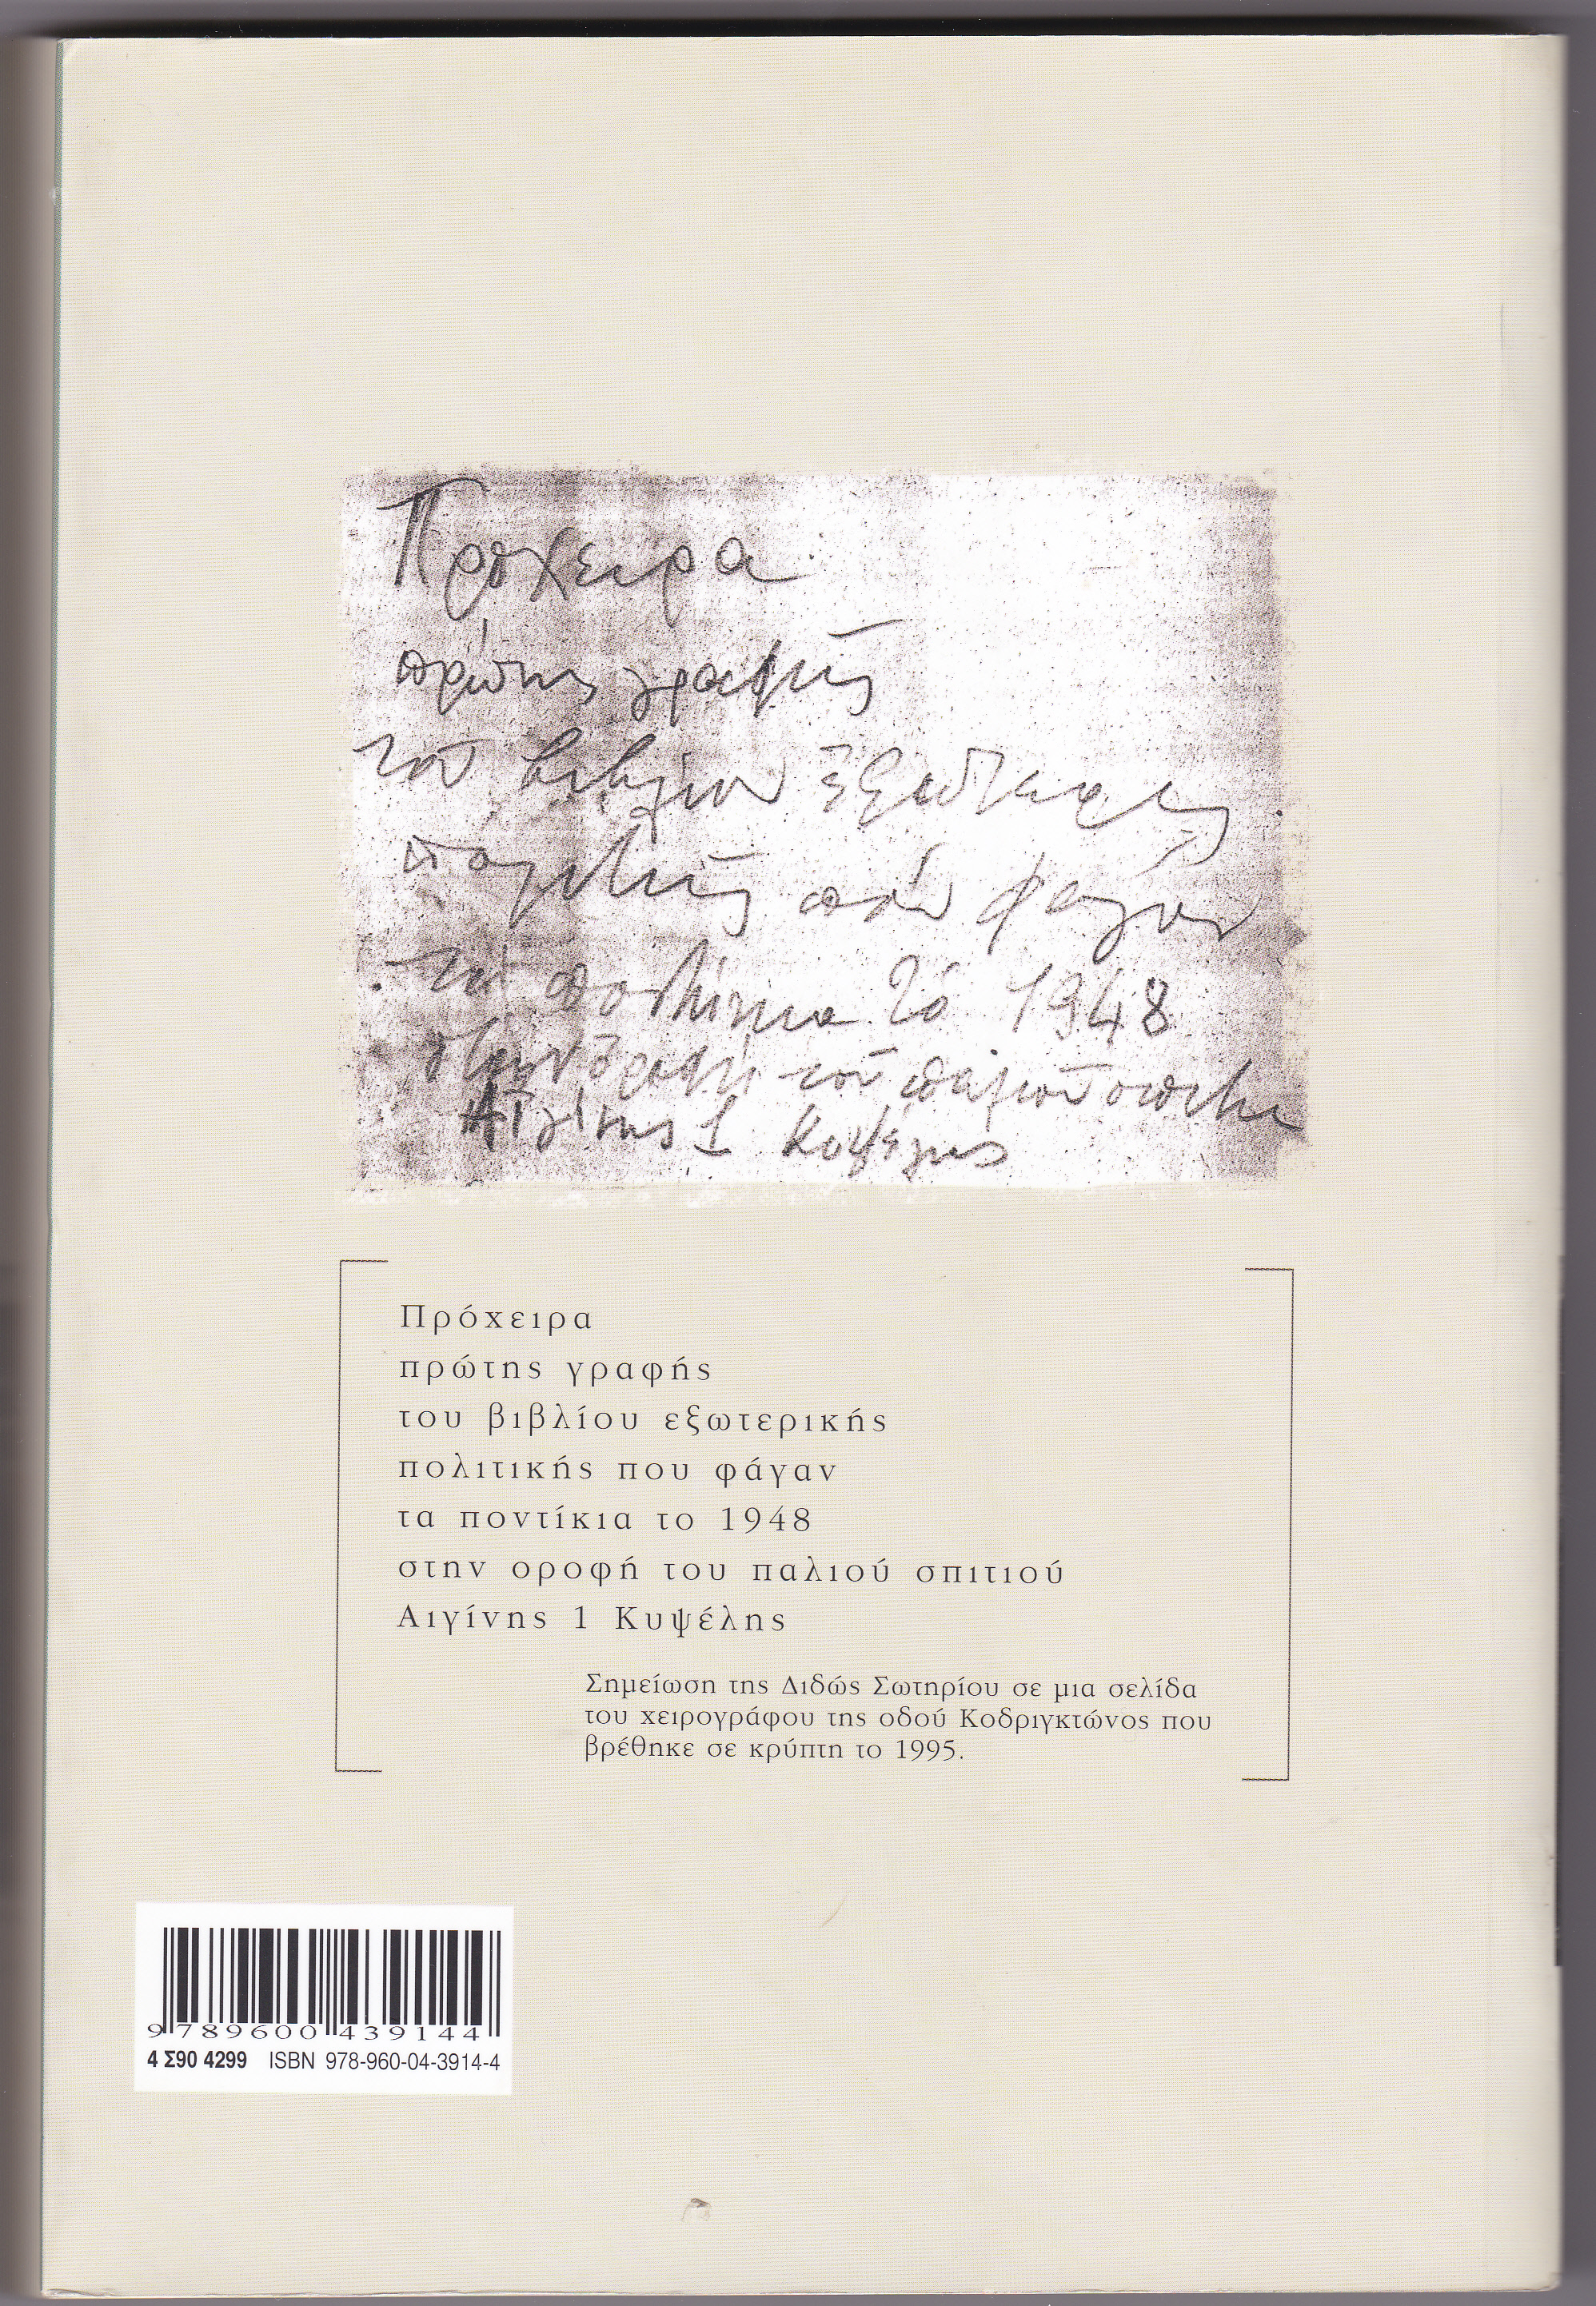 Πρόχειρα
πρώτης γραφής
τοῦ βιβλίου ἐξωτερικῆς
πολιτικῆς ποὺ φάγαν
τὰ ποντίκια τὸ 1948
στὴν ὀροφὴ τοῦ παλιοῦ σπιτιοῦ
Αἰγίνης 1 Κυψέλης
Πρόχειρα
πρώτης γραφής
του βιβλίου εξωτερικής
πολιτικής που φάγαν
τα ποντίκια το 1948
στην οροφή του παλιού σπιτιού
Αιγίνης 1 Κυψέλης
Σημείωση της Διδώς Σωτηρίου σε μια σελίδα
του χειρογράφου της οδού Κοδριγκτώνος που
βρέθηκε σε κρύπτη το 1995.
9 789600 439144
4 Σ90 4299 ISBN 978-960-04-3914-4